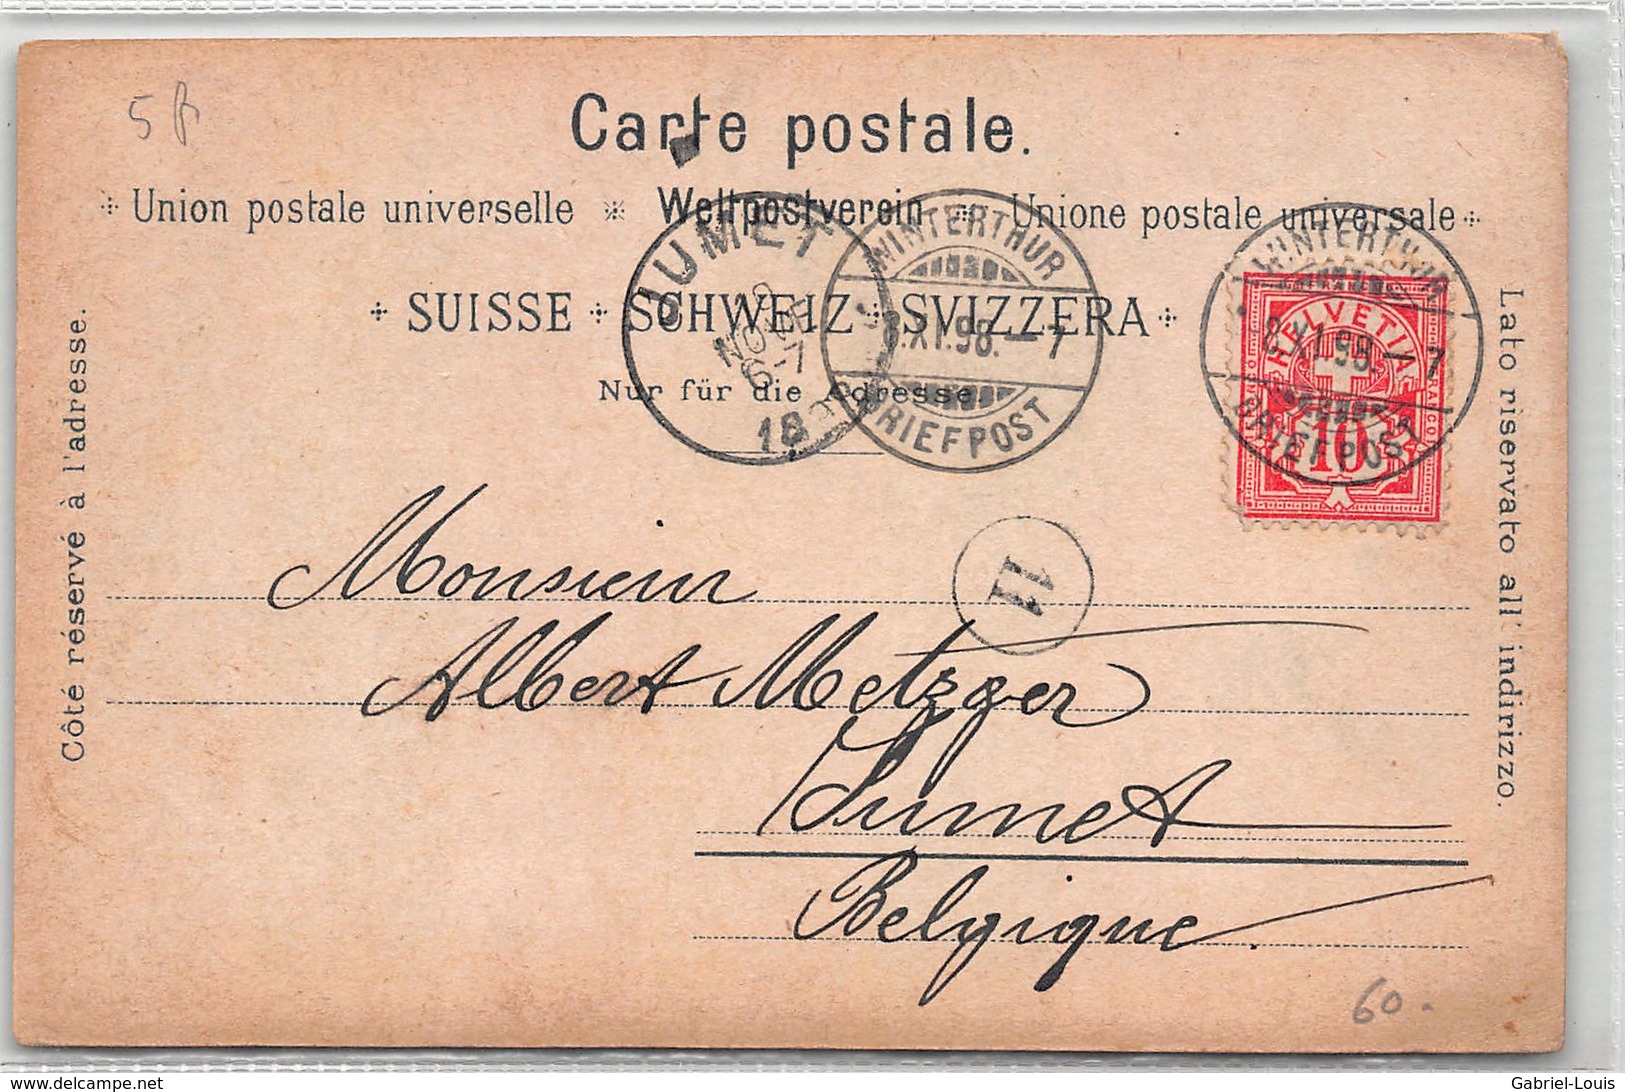 5 fr
Carte postale.
Union postale universelle Weltpostverein Unione postale universale
SUISSE SCHWEIZ SVIZZERA
Nur für die Adresse.
Côté réservé à l'adresse.
Lato riservato all' indirizzo.
JUMET
NOV
6-7
18
WINTERTHUR
8.XI.98.–7
BRIEFPOST
WINTERTHUR
8.XI.98.–7
BRIEFPOST
HELVETIA
FRANCO
10
11
Monsieur
Albert Metzger
Jumet
Belgique.
60.
delcampe.net
Gabriel-Louis